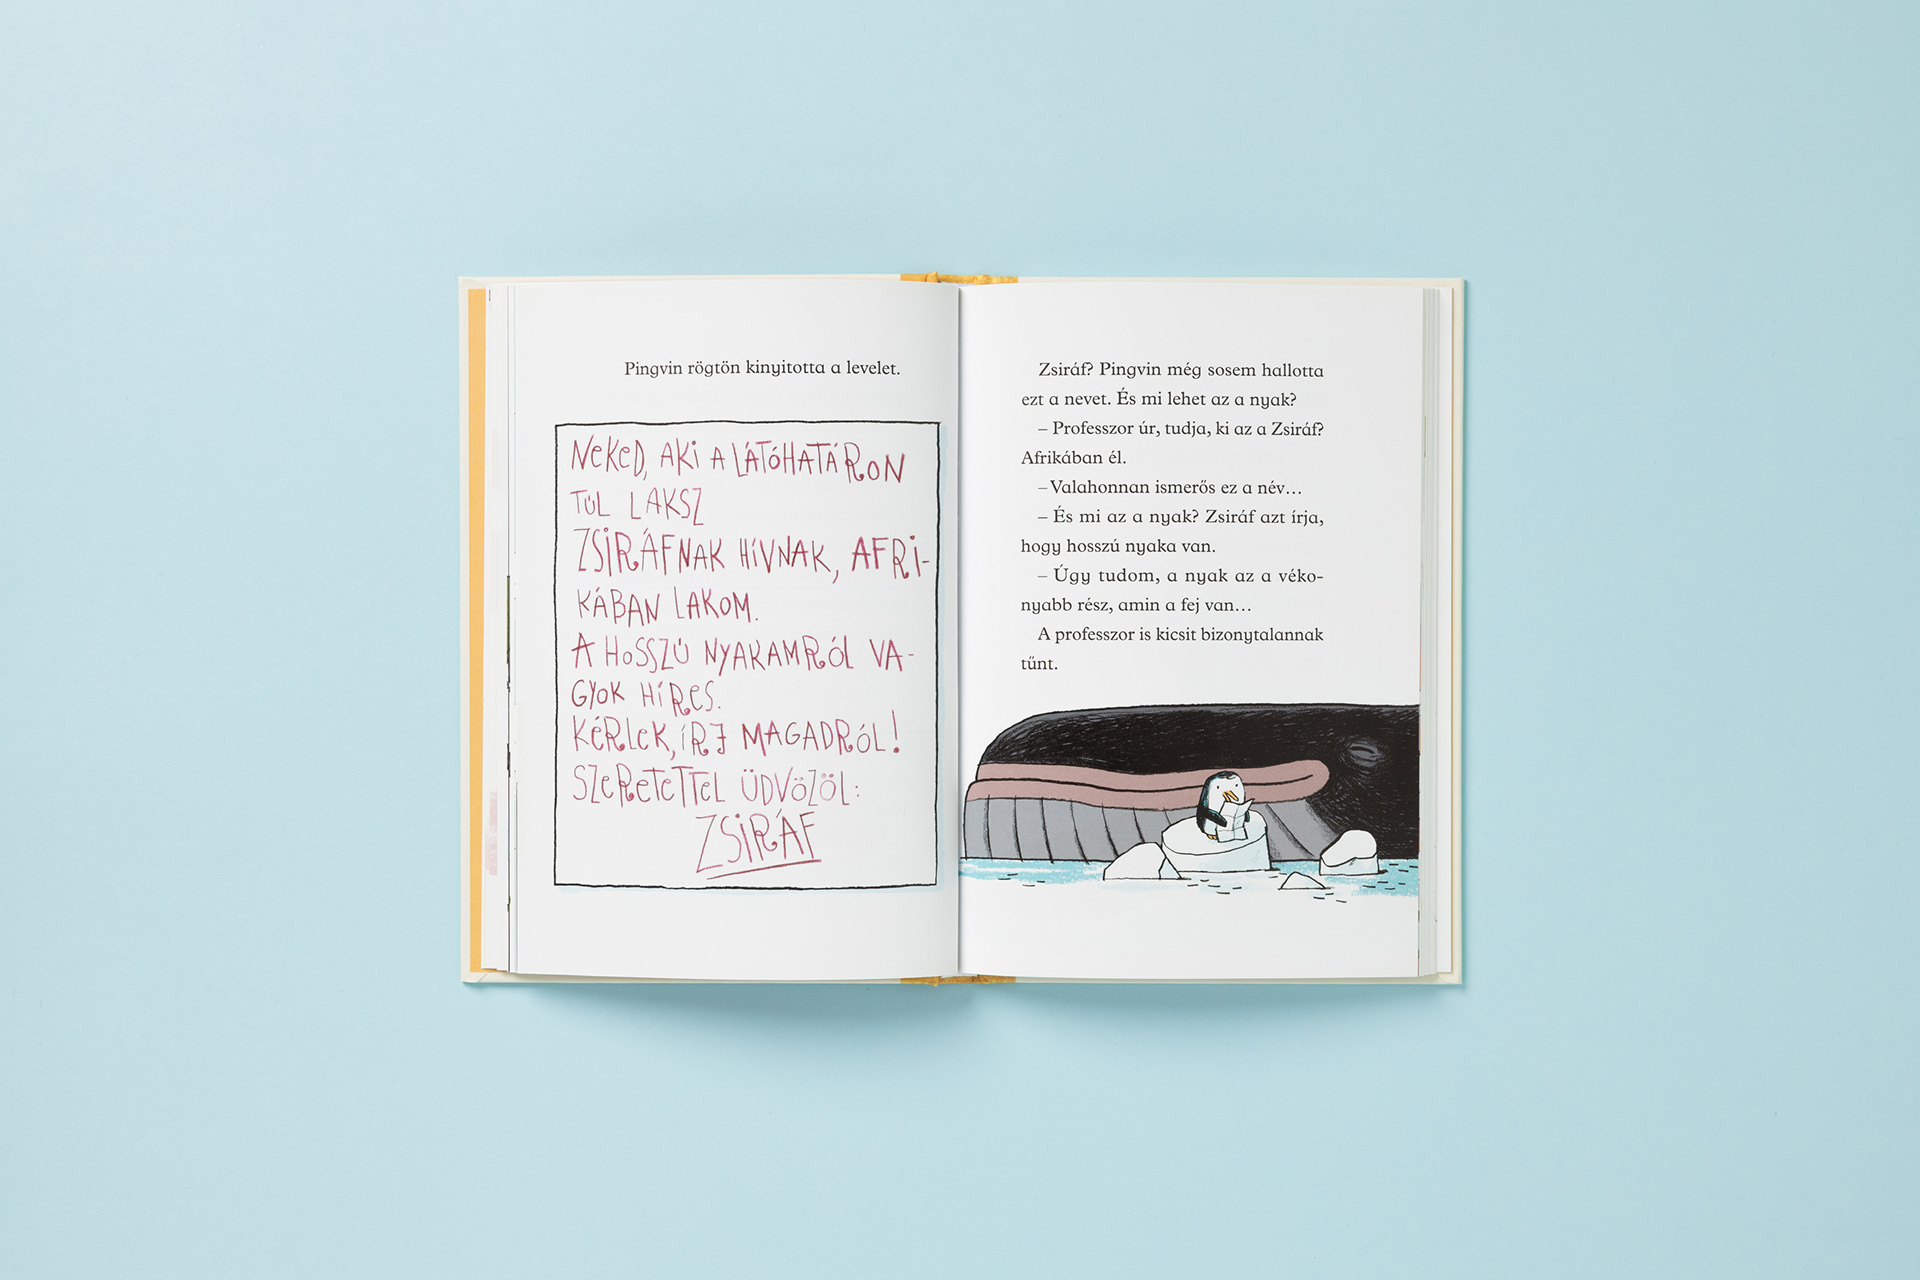 Pingvin rögtön kinyitotta a levelet.
NEKED, AKI A LÁTÓHATÁRON
TÚL LAKSZ
ZSIRÁFNAK HÍVNAK, AFRI-
KÁBAN LAKOM.
A HOSSZÚ NYAKAMRÓL VA-
GYOK HÍRES.
KÉRLEK, ÍRJ MAGADRÓL!
SZERETETTEL ÜDVÖZÖL:
ZSIRÁF
Zsiráf? Pingvin még sosem hallotta
ezt a nevet. És mi lehet az a nyak?
– Professzor úr, tudja, ki az a Zsiráf?
Afrikában él.
– Valahonnan ismerős ez a név…
– És mi az a nyak? Zsiráf azt írja,
hogy hosszú nyaka van.
– Úgy tudom, a nyak az a véko-
nyabb rész, amin a fej van…
A professzor is kicsit bizonytalannak
tűnt.